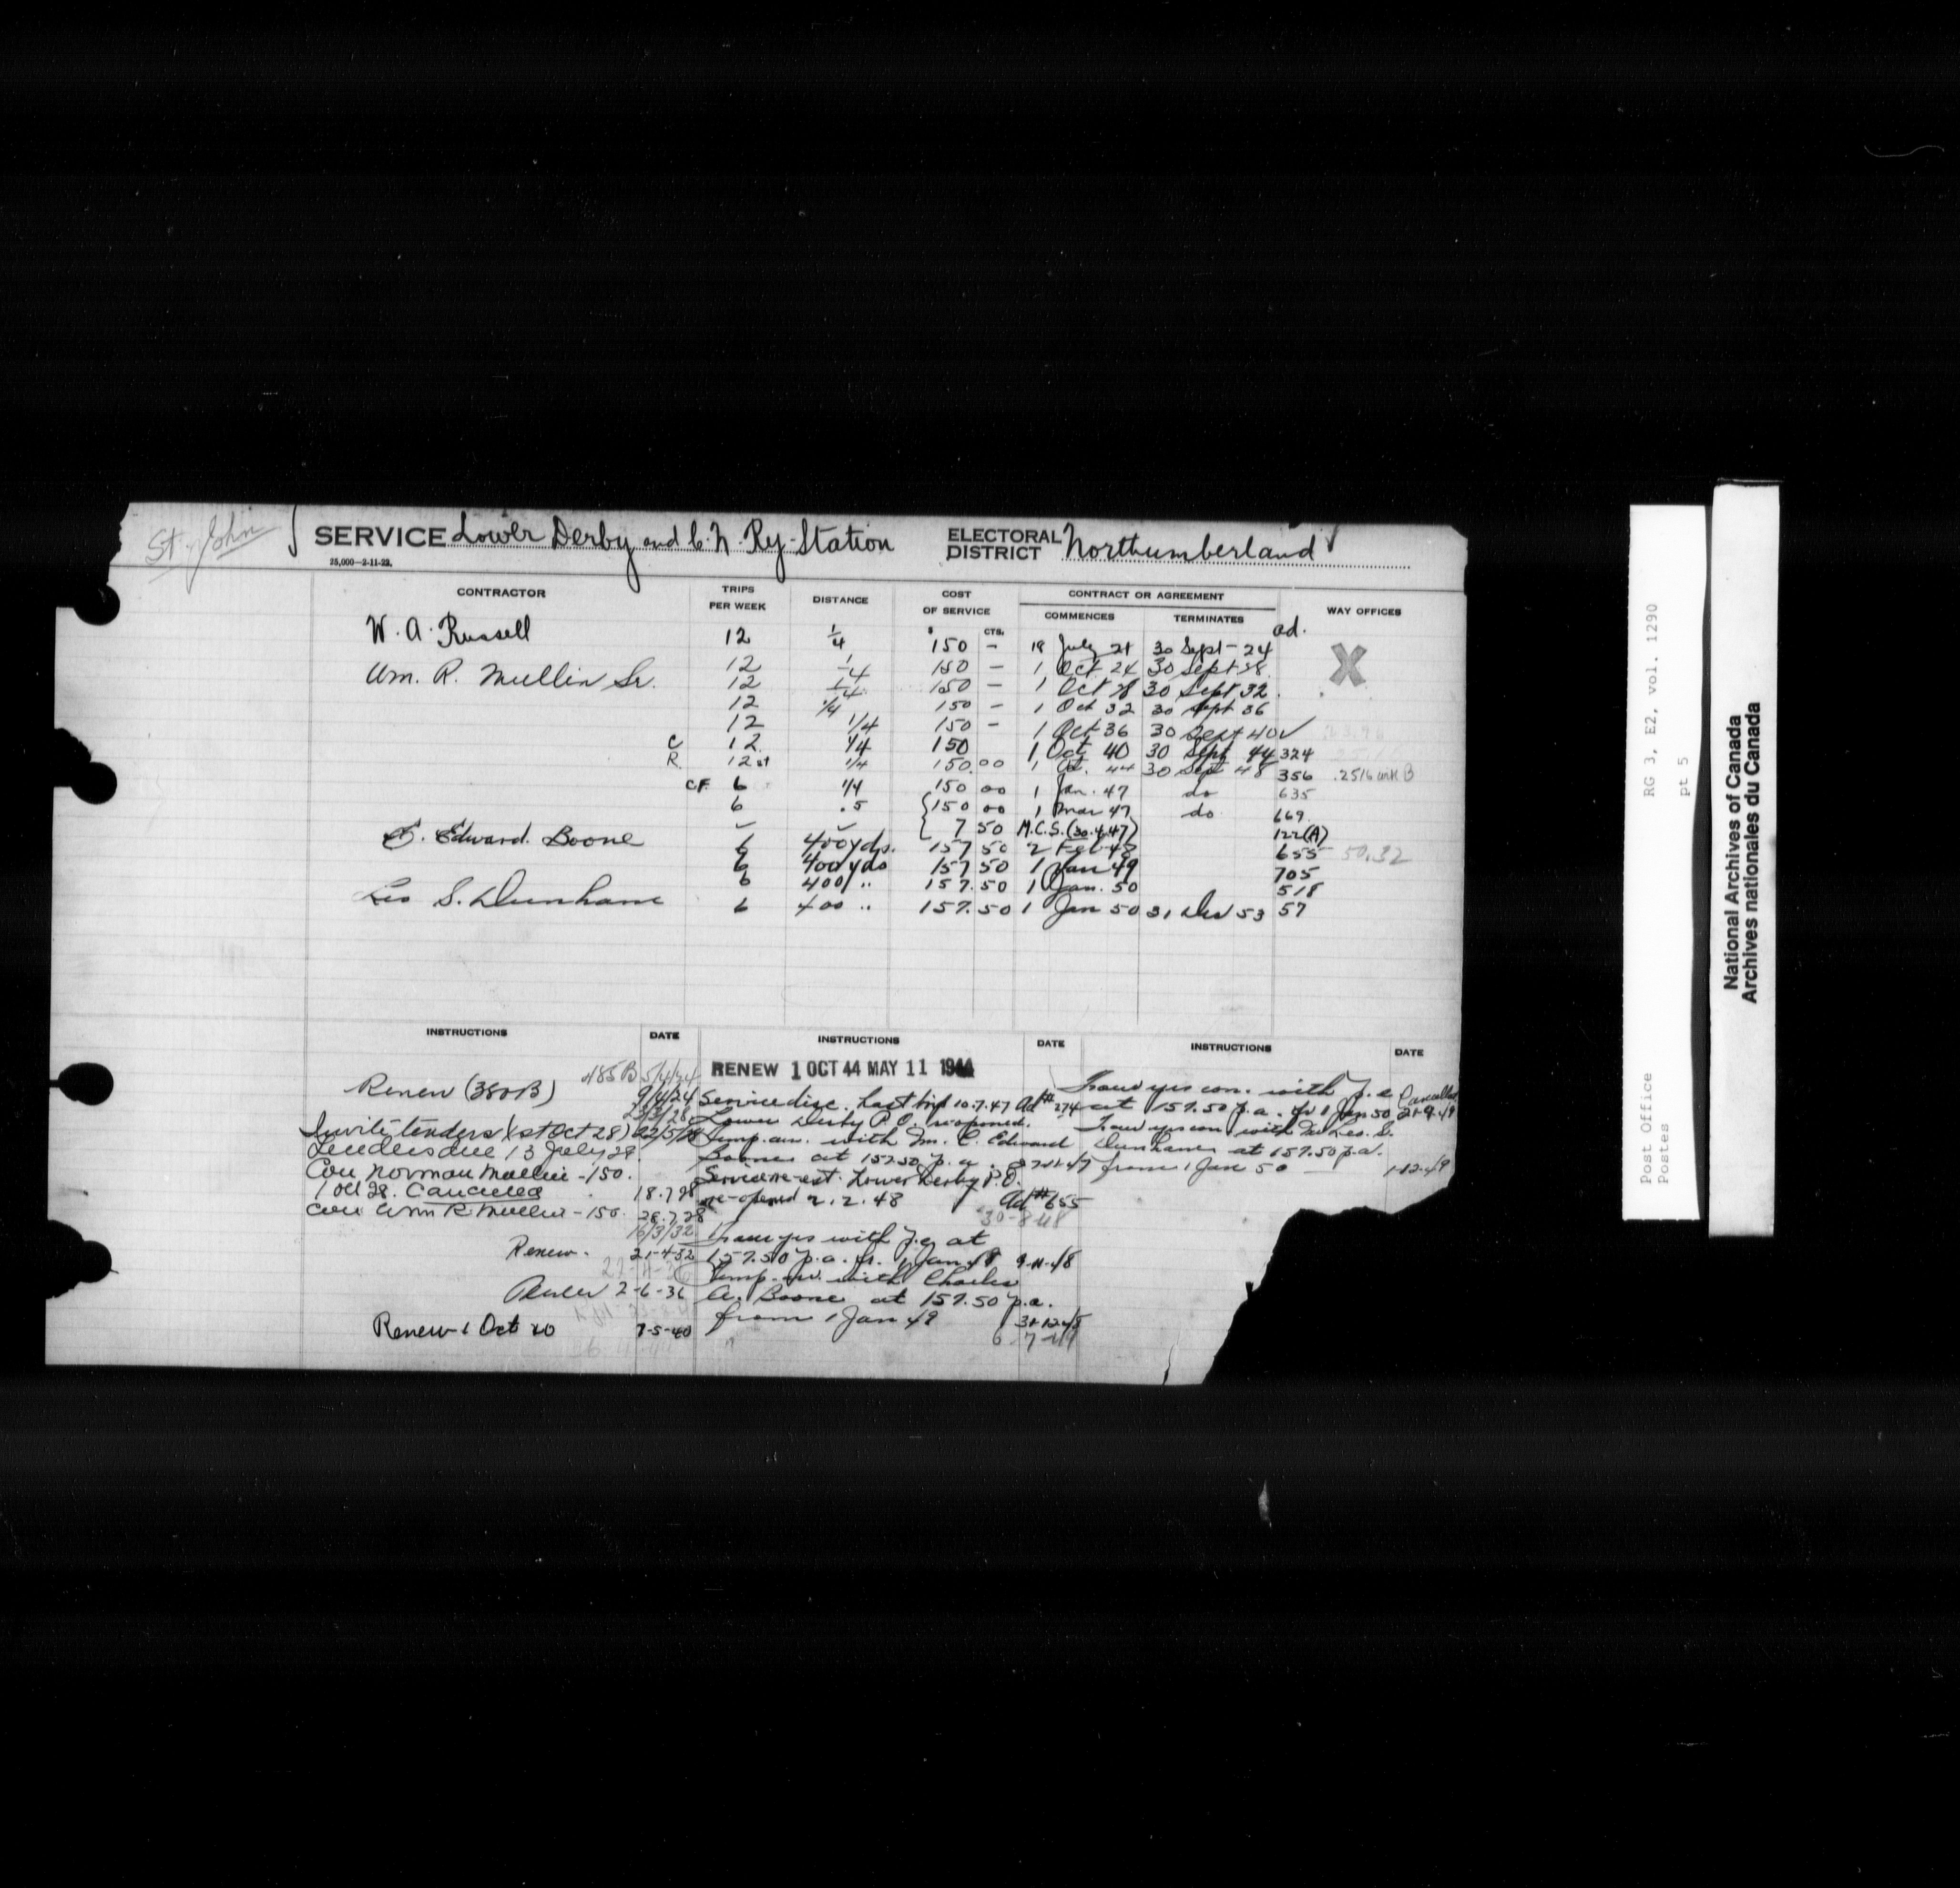 St. John
SERVICE Lower Derby and C. N. Ry. Station ELECTORAL DISTRICT Northumberland
25,000—2-11-22.
CONTRACTOR TRIPS PER WEEK DISTANCE COST OF SERVICE CONTRACT OR AGREEMENT WAY OFFICES
$ CTS. COMMENCES TERMINATES ad.
W. A. Russell 12 1/4 150 — 18 July 21 30 Sept - 24 X
12 1/4 150 — 1 Oct 24 30 Sept 28
Wm. R. Mullin Sr. 12 1/4 150 — 1 Oct 28 30 Sept 32
12 1/4 150 — 1 Oct 32 30 Sept 36
12 1/4 150 — 1 Oct 36 30 Sept 40 ✓
C 12 1/4 150 1 Oct 40 30 Sept 44 324
R 12 1/4 150.00 1 Oct. 44 30 Sept 48 356
CF. 6 1/4 150 00 1 Jan. 47 do 635
6 .5 150 00 1 Mar 47 do 669
7 50 M.C.S. (30.4.47) 122(A)
C. Edward Boone 6 400 yds. 157 50 2 Feb 48 655 50.32
6 400 yds 157 50 1 Jan 49 705
6 400 " 157.50 1 Jan. 50 518
Leo S. Dunham 6 400 " 157.50 1 Jan 50 31 Dec 53 57
INSTRUCTIONS DATE INSTRUCTIONS DATE INSTRUCTIONS DATE
485 B 5/4/24
Renew (380B) 9/4/24
23/3/28
Invite tenders (1st Oct 28) 22/5/28
Tenders due 13 July 28.
Con Norman Mullin - 150.
1 Oct 28. Cancelled 18.7.28
Con Wm R. Mullin - 150. 28.7.28
16/3/32
Renew. 21-4-32
Renew 2-6-36
Renew 1 Oct 40 7-5-40
RENEW 1 OCT 44 MAY 11 1944
Service disc. Last trip 10.7.47 Ad# 274
Lower Derby P.O.
Temp. arr. with Mr. C. Edward
Boone at 157.50 p.a.
Service re-est. Lower Derby P.O.
re-opened 2.2.48 Ad# 655
30-8-48
with J.C. at
157.50 p.a. fr. 1 Jan 49 9-11-48
Temp. arr. with Charles
A. Boone at 157.50 p.a.
from 1 Jan 49 31-12-48
6-7-49
con. with J.C. Cancelled
at 157.50 p.a. fr 1 Jan 50 21-9-49
con. with Mr Leo. S.
Dunham at 157.50 p.a.
from 1 Jan 50 — 1-12-49
Post Office RG 3, E2, vol. 1290
Postes pt 5
National Archives of Canada
Archives nationales du Canada